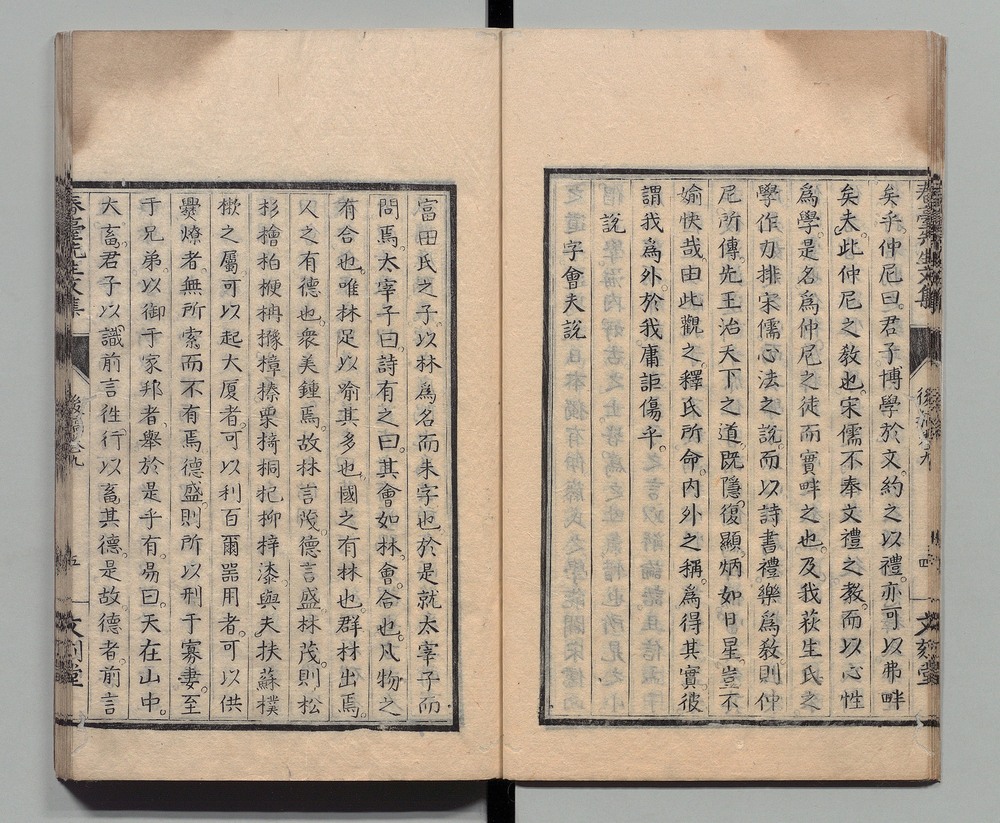 矣乎仲尼曰君子博學於文約之以禮亦可以弗畔
矣夫此仲尼之敎也宋儒不奉文禮之敎而以心性
爲學是名爲仲尼之徒而實畔之也及我萩生氏之
學作力排宋儒心法之說而以詩書禮樂爲敎則仲
尼所傳先王治天下之道既隱復顯炳如日星豈不
愉快哉由此觀之釋氏所命内外之稱爲得其實彼
謂我爲外於我庸詎傷乎
說
字會夫說
富田氏之子以林爲名而未字也於是就太宰子而
問焉太宰子曰詩有之曰其會如林會合也凡物之
有合也唯林足以喻其多也國之有林也群材出焉
人之有德也衆美鍾焉故林言茂德言盛林茂則松
杉檜柏楩柟櫲樟榛栗椅桐杞柳梓漆與夫扶蘇樸
樕之屬可以起大厦者可以利百爾器用者可以供
爨燎者無所索而不有焉德盛則所以刑于寡妻至
于兄弟以御于家邦者舉於是乎有易曰天在山中
大畜君子以識前言徃行以畜其德是故德者前言
春臺先生文集
後稿卷九
五
文刻堂
四
文刻堂